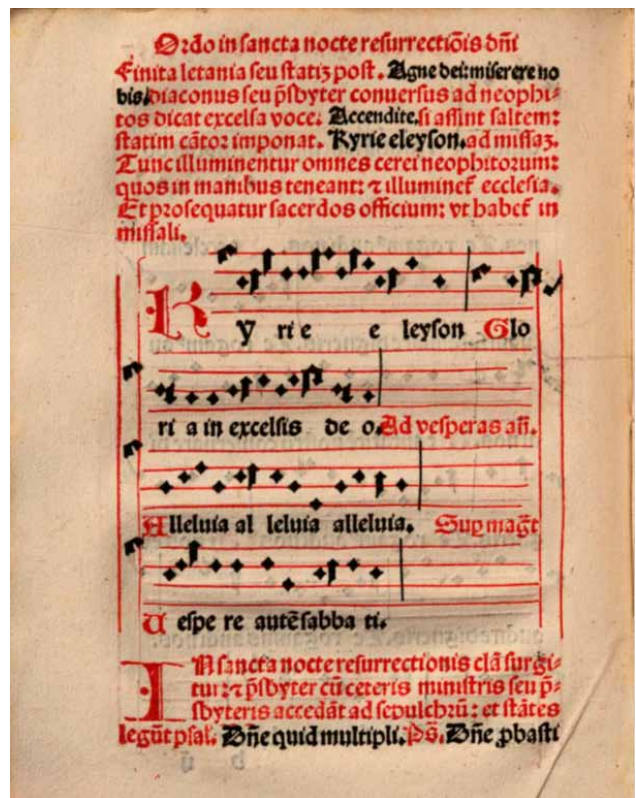 Ordo in sancta nocte resurrectiõis dñi
Finita letania seu statiʒ post. Agne dei: miserere no
bis. diaconus seu p̄sbyter conversus ad neophi-
tos dicat excelsa voce. Accendite. si assint saltem:
statim cãtor imponat. Kyrie eleyson. ad missaʒ.
Tunc illuminentur omnes cerei neophitorum:
quos in manibus teneant: ⁊ illuminet̃ ecclesia.
Et prosequatur sacerdos officium: vt habet̃ in
missali.
Ky rie e leyson Glo
ri a in excelsis de o. Ad vesperas añ.
Alleluia al leluia alleluia. Sup magt̃
Uespe re autē sabba ti.
IN sancta nocte resurrectionis clã surgi-
tur: ⁊ p̄sbyter cũ ceteris ministris seu p̄-
sbyteris accedãt ad sepulchrũ: et stãtes
legũt psal. Dñe quid multipli. Ps̃. Dñe ꝓbasti
b ij